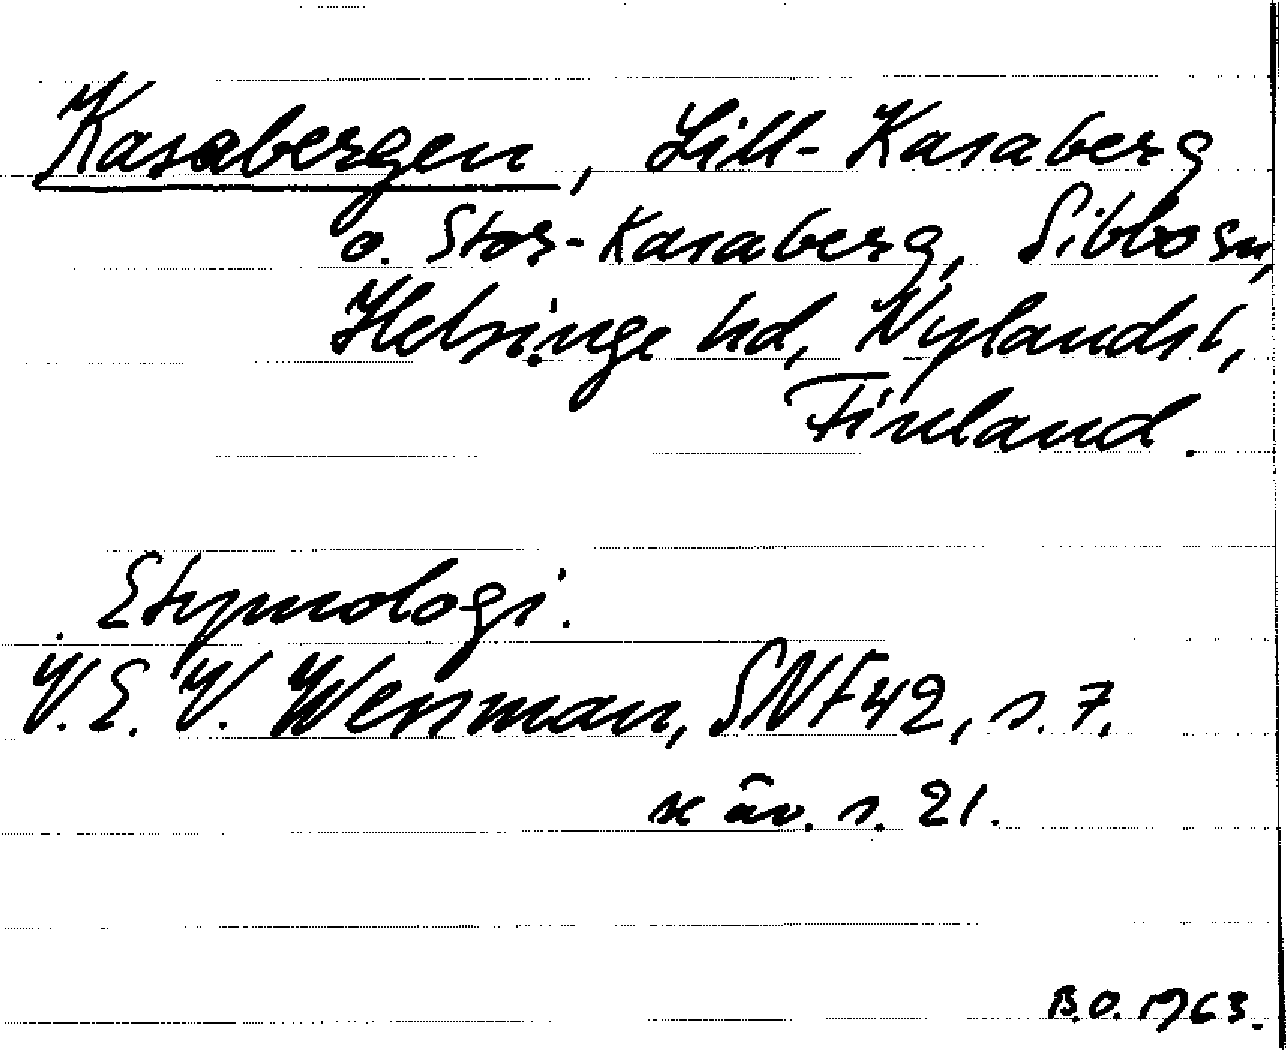 Kasabergen, Lill-Kasaberg
o. Stor-Kasaberg, Sibbo sn,
Helsinge hd, Nylands l,
Finland.
Etymologi.
V. E. V. Wessman, SNF 42, s. 7.
se äv. s. 21.
B.O. 1963.